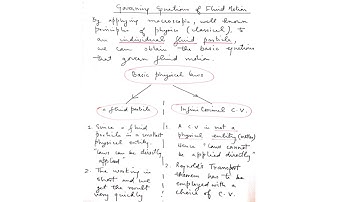 Governing Equations of Fluid Motion
By applying macroscopic, well known
principles of physics (classical) to
an individual fluid particle,
we can obtain the basic equations
that govern fluid motion.
Basic physical laws
a fluid particle
Infinitesimal C.V.
1. Since a fluid
particle is a smallest
physical entity.
"laws can be directly
applied"
2. The working is
short and we
get the result
very quickly
1. A C.V is not a
physical entity (matter)
Hence "laws cannot
be applied directly"
2. Reynold's Transport
theorem has to be
employed with a
choice of C.V.